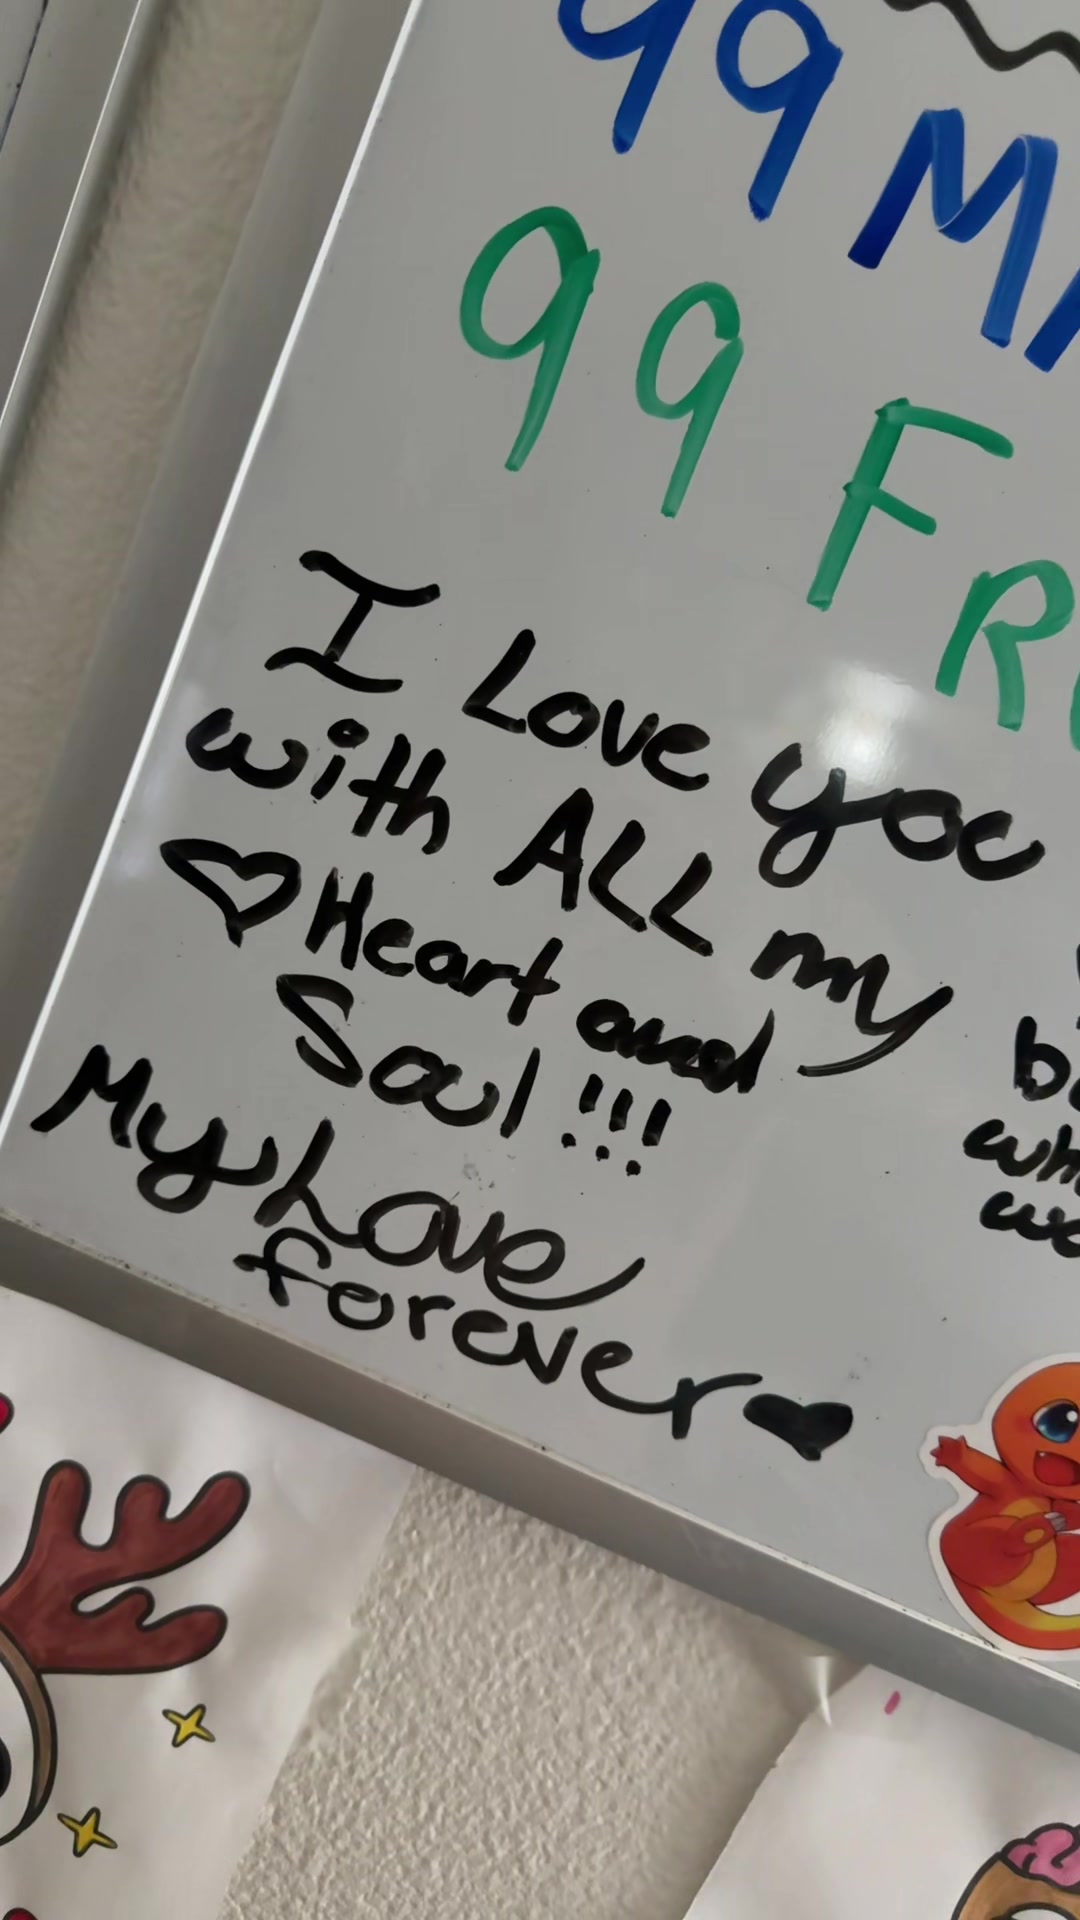 99 M
99 FR
I Love you
with ALL my
♡ Heart and
Soul !!!
My Love
forever ♥